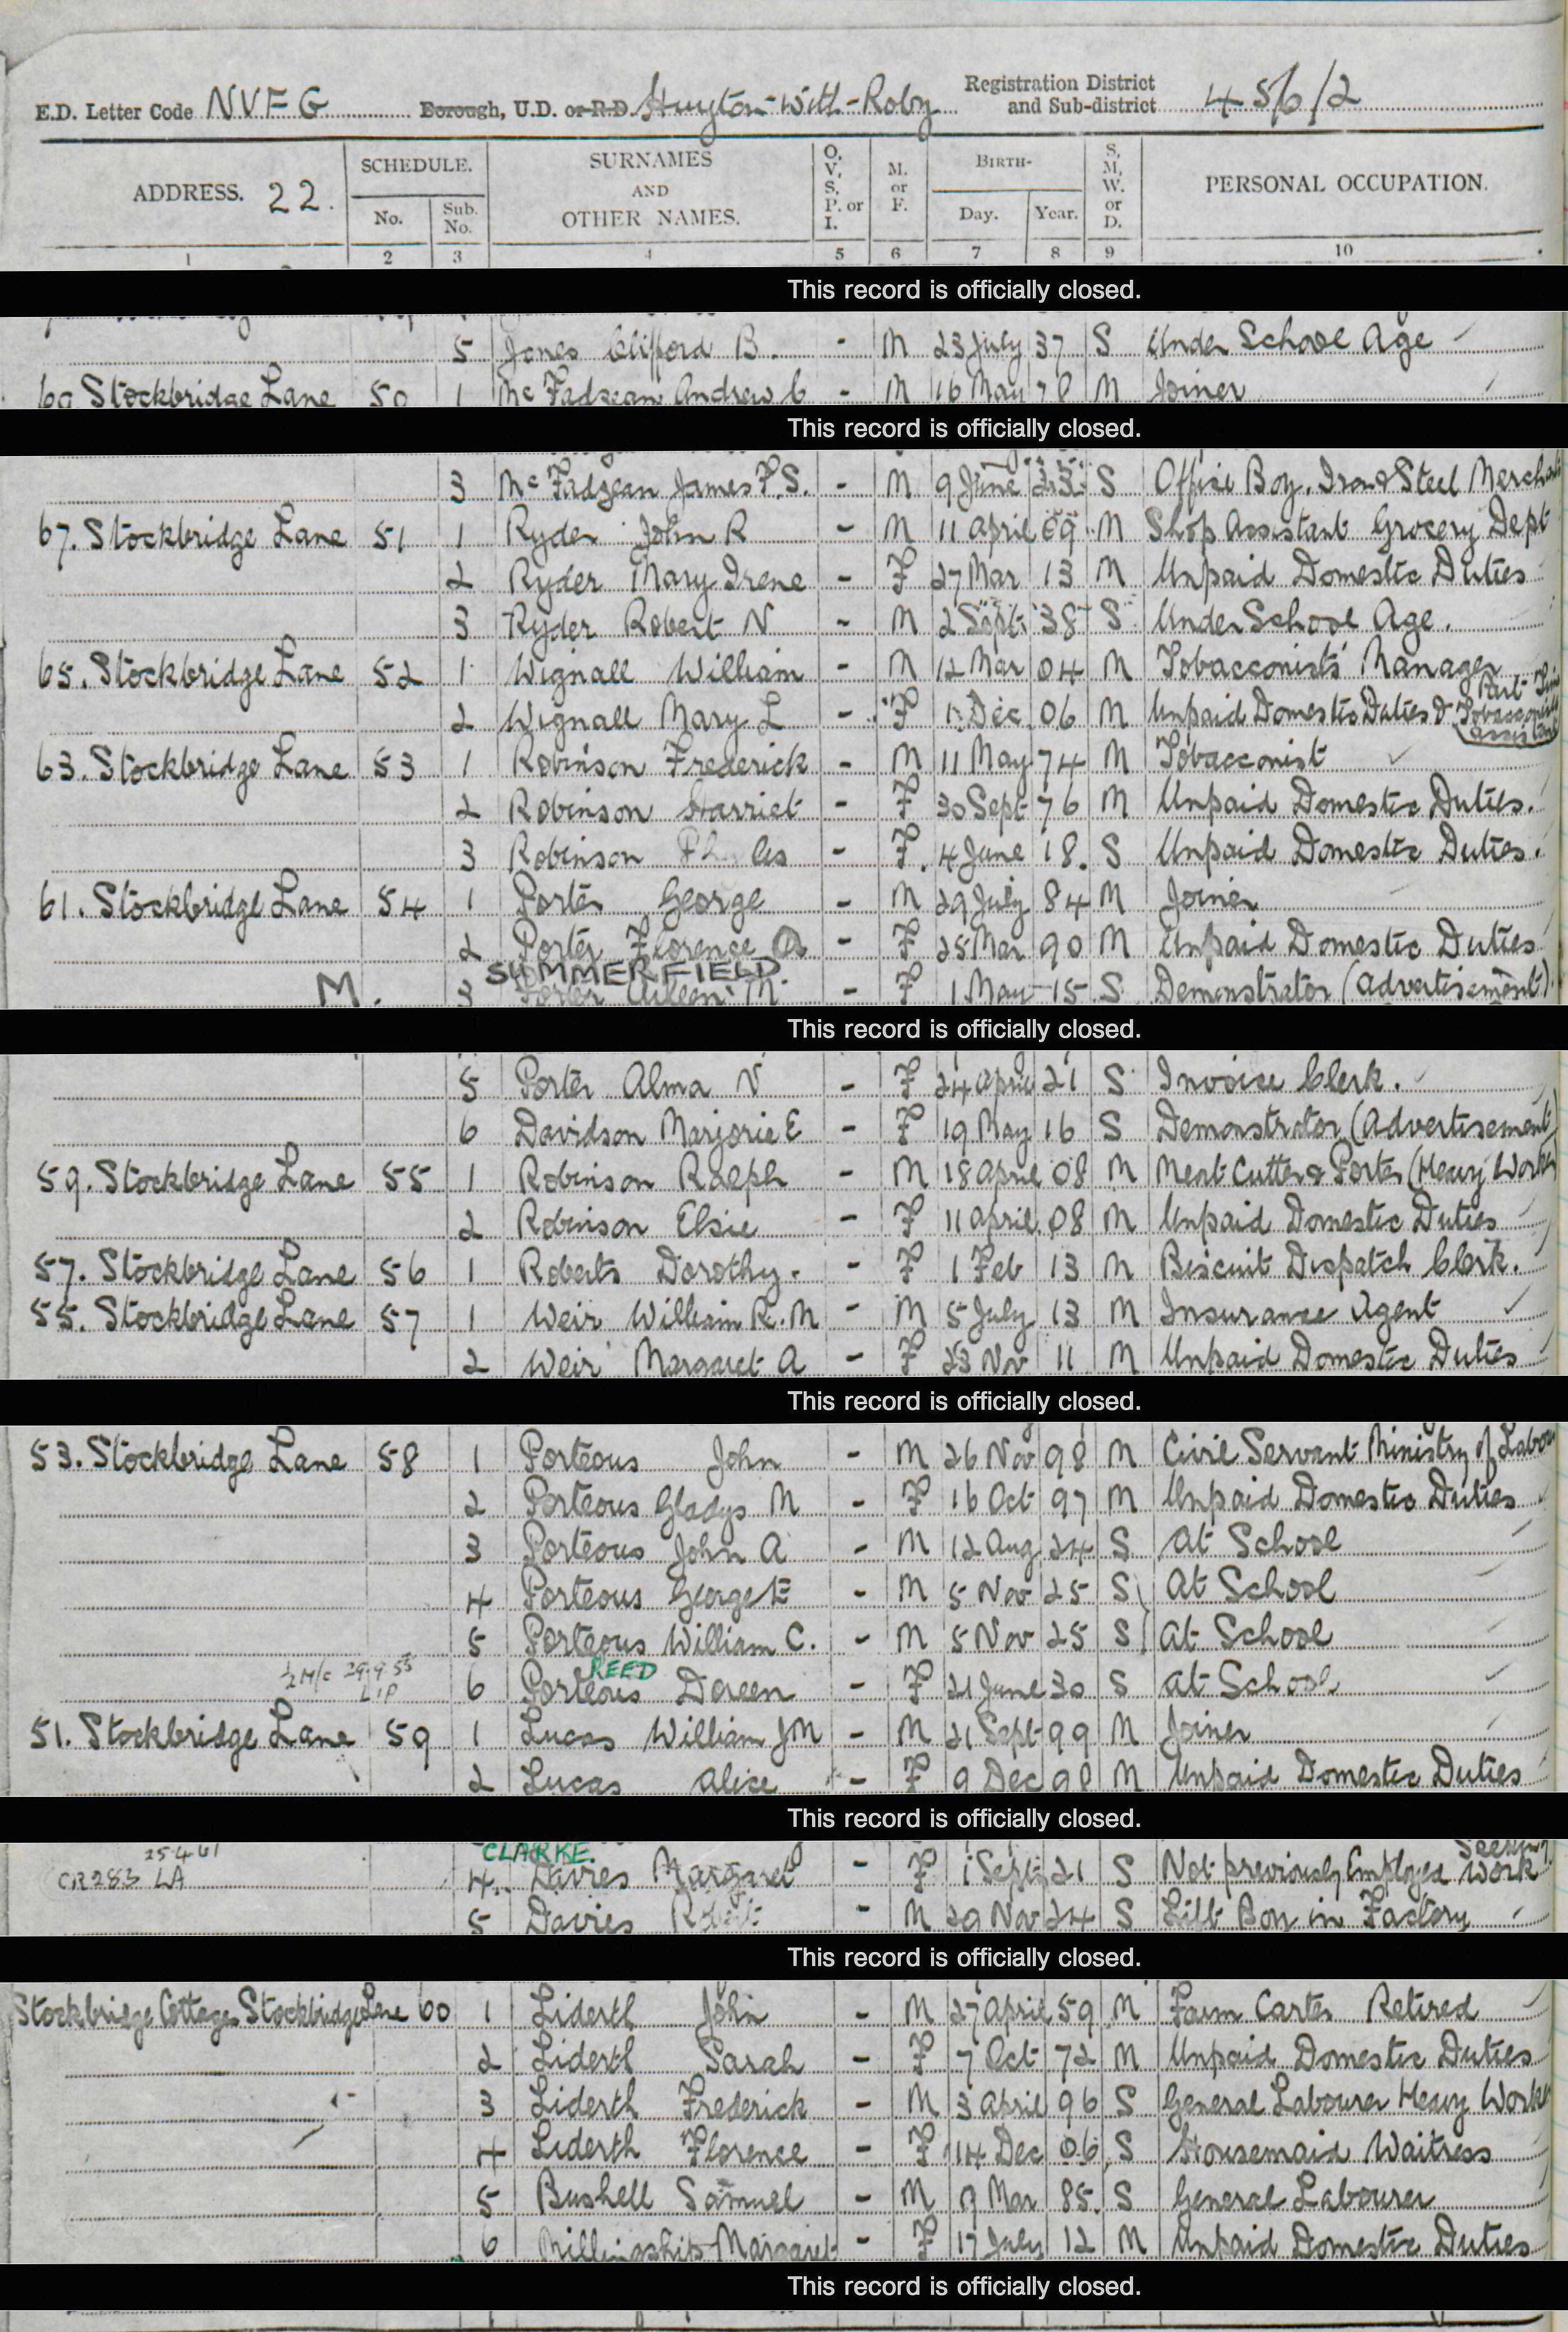 E.D. Letter Code NVFG Borough, U.D. or R.D. Huyton-with-Roby Registration District and Sub-district 456/2
ADDRESS. 22. SCHEDULE. No. Sub. No. SURNAMES AND OTHER NAMES. O, V, S, P. or I. M. or F. BIRTH- Day. Year. S, M, W. or D. PERSONAL OCCUPATION.
1 2 3 4 5 6 7 8 9 10
This record is officially closed.
5 Jones Clifford B. - M 23 July 37 S Under School Age
69 Stockbridge Lane 50 1 McFadzean Andrew C - M 16 May 78 M Joiner
This record is officially closed.
3 McFadzean James F.S. - M 9 June 23 S Office Boy. Iron & Steel Merchant
67. Stockbridge Lane 51 1 Ryder John R - M 11 April 09 M Shop Assistant Grocery Dept
2 Ryder Mary Irene - F 27 Mar 13 M Unpaid Domestic Duties
3 Ryder Robert N - M 2 Sept 38 S Under School Age.
65. Stockbridge Lane 52 1 Wignall William - M 12 Mar 04 M Tobacconists' Manager
2 Wignall Mary L - F 1 Dec 06 M Unpaid Domestic Duties & Part Time Tobacconist assistant
63. Stockbridge Lane 53 1 Robinson Frederick - M 11 May 74 M Tobacconist
2 Robinson Harriet - F 30 Sept 76 M Unpaid Domestic Duties.
3 Robinson - F. 4 June 18. S Unpaid Domestic Duties.
61. Stockbridge Lane 54 1 Porter George - M 29 July 84 M Joiner
2 Porter Florence A - F 28 Mar 90 M Unpaid Domestic Duties
SUMMERFIELD.
M. 3 Porter Eileen M. - F 1 May 15 S Demonstrator (Advertisement).
This record is officially closed.
5 Porter Alma V - F 24 April 21 S Invoice Clerk.
6 Davidson Marjorie E - F 19 May 16 S Demonstrator (Advertisement)
59. Stockbridge Lane 55 1 Robinson Ralph - M 18 April 08 M Meat Cutter & Porter (Heavy Work)
2 Robinson Elsie - F 11 April 08 M Unpaid Domestic Duties
57. Stockbridge Lane 56 1 Roberts Dorothy. - F 1 Feb 13 M Biscuit Dispatch Clerk.
55. Stockbridge Lane 57 1 Weir William R.M - M 5 July 13 M Insurance Agent
2 Weir Margaret A - F 23 Nov 11 M Unpaid Domestic Duties
This record is officially closed.
53. Stockbridge Lane 58 1 Porteous John - M 26 Nov 98 M Civil Servant Ministry of Labour
2 Porteous Gladys M - F 16 Oct 97 M Unpaid Domestic Duties
3 Porteous John A - M 12 Aug 24 S At School
4 Porteous George E - M 5 Nov 25 S At School
5 Porteous William C. - M 5 Nov 25 S At School
REED
29.9.53 LIP 6 Porteous Doreen - F 21 June 30 S at School
51. Stockbridge Lane 59 1 Lucas William JM - M 21 Sept 99 M Joiner
2 Lucas Alice - F 9 Dec 98 M Unpaid Domestic Duties
This record is officially closed.
25 4 61 CLARKE.
CR283 LA 4 Davies Margaret - F 1 Sept 21 S Not previously Employed Seeking Work
5 Davies Robert - M 29 Nov 24 S Lift Boy in Factory
This record is officially closed.
Stockbridge Cottages Stockbridge Lane 60 1 Liderth John - M 27 April 59 M Farm Carter Retired
2 Liderth Sarah - F 7 Oct 72 M Unpaid Domestic Duties
3 Liderth Frederick - M 3 April 96 S General Labourer Heavy Work
4 Liderth Florence - F 14 Dec 06 S Housemaid Waitress
5 Bushell Samuel - M 9 Mar 85. S General Labourer
6 Margaret - F 17 July 12 M Unpaid Domestic Duties
This record is officially closed.